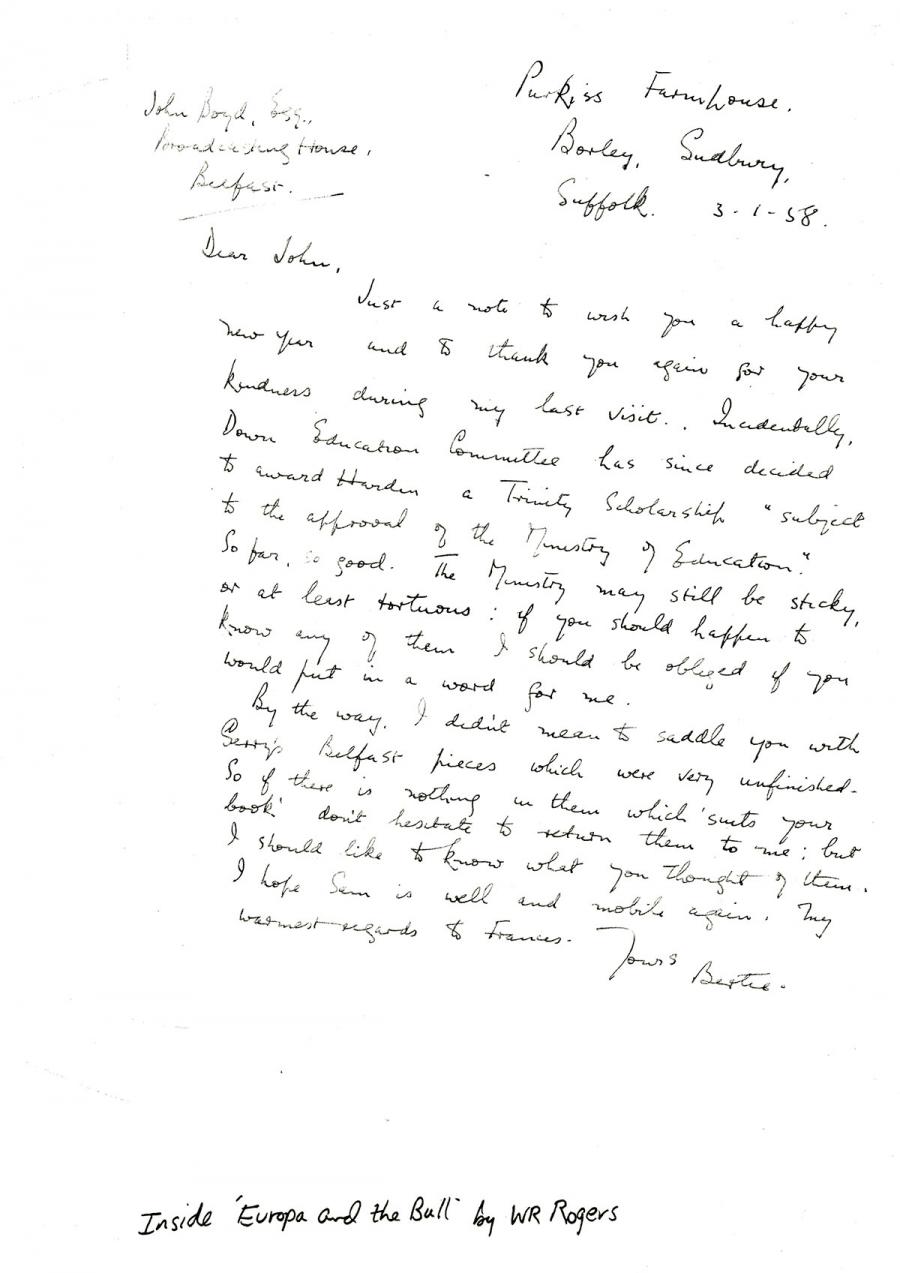 John Boyd, Esq.,
Broadcasting House,
Belfast.
Purkiss Farmhouse.
Borley, Sudbury,
Suffolk. 3-1-58.
Dear John,
Just a note to wish you a happy
new year and to thank you again for your
kindness during my last visit. . Incidentally,
Down Education Committee has since decided
to award Harden a Trinity Scholarship "subject
to the approval of the Ministry of Education."
So far, so good. The Ministry may still be sticky,
or at least tortuous : if you should happen to
know any of them I should be obliged if you
would put in a word for me.
By the way, I didn't mean to saddle you with
Gerry's Belfast pieces which were very unfinished.
So if there is nothing in them which 'suits your
book' don't hesitate to return them to me ; but
I should like to know what you thought of them.
I hope Sam is well and mobile again. My
warmest regards to Frances.
Yours
Bertie.
Inside 'Europa and the Bull' by WR Rogers